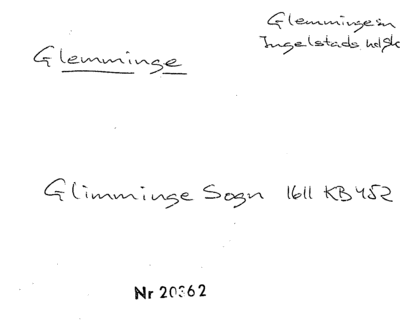 Glemminge sn
Ingelstads hd Sk
Glemminge
Glimminge Sogn 1611 KB 452
Nr 20362